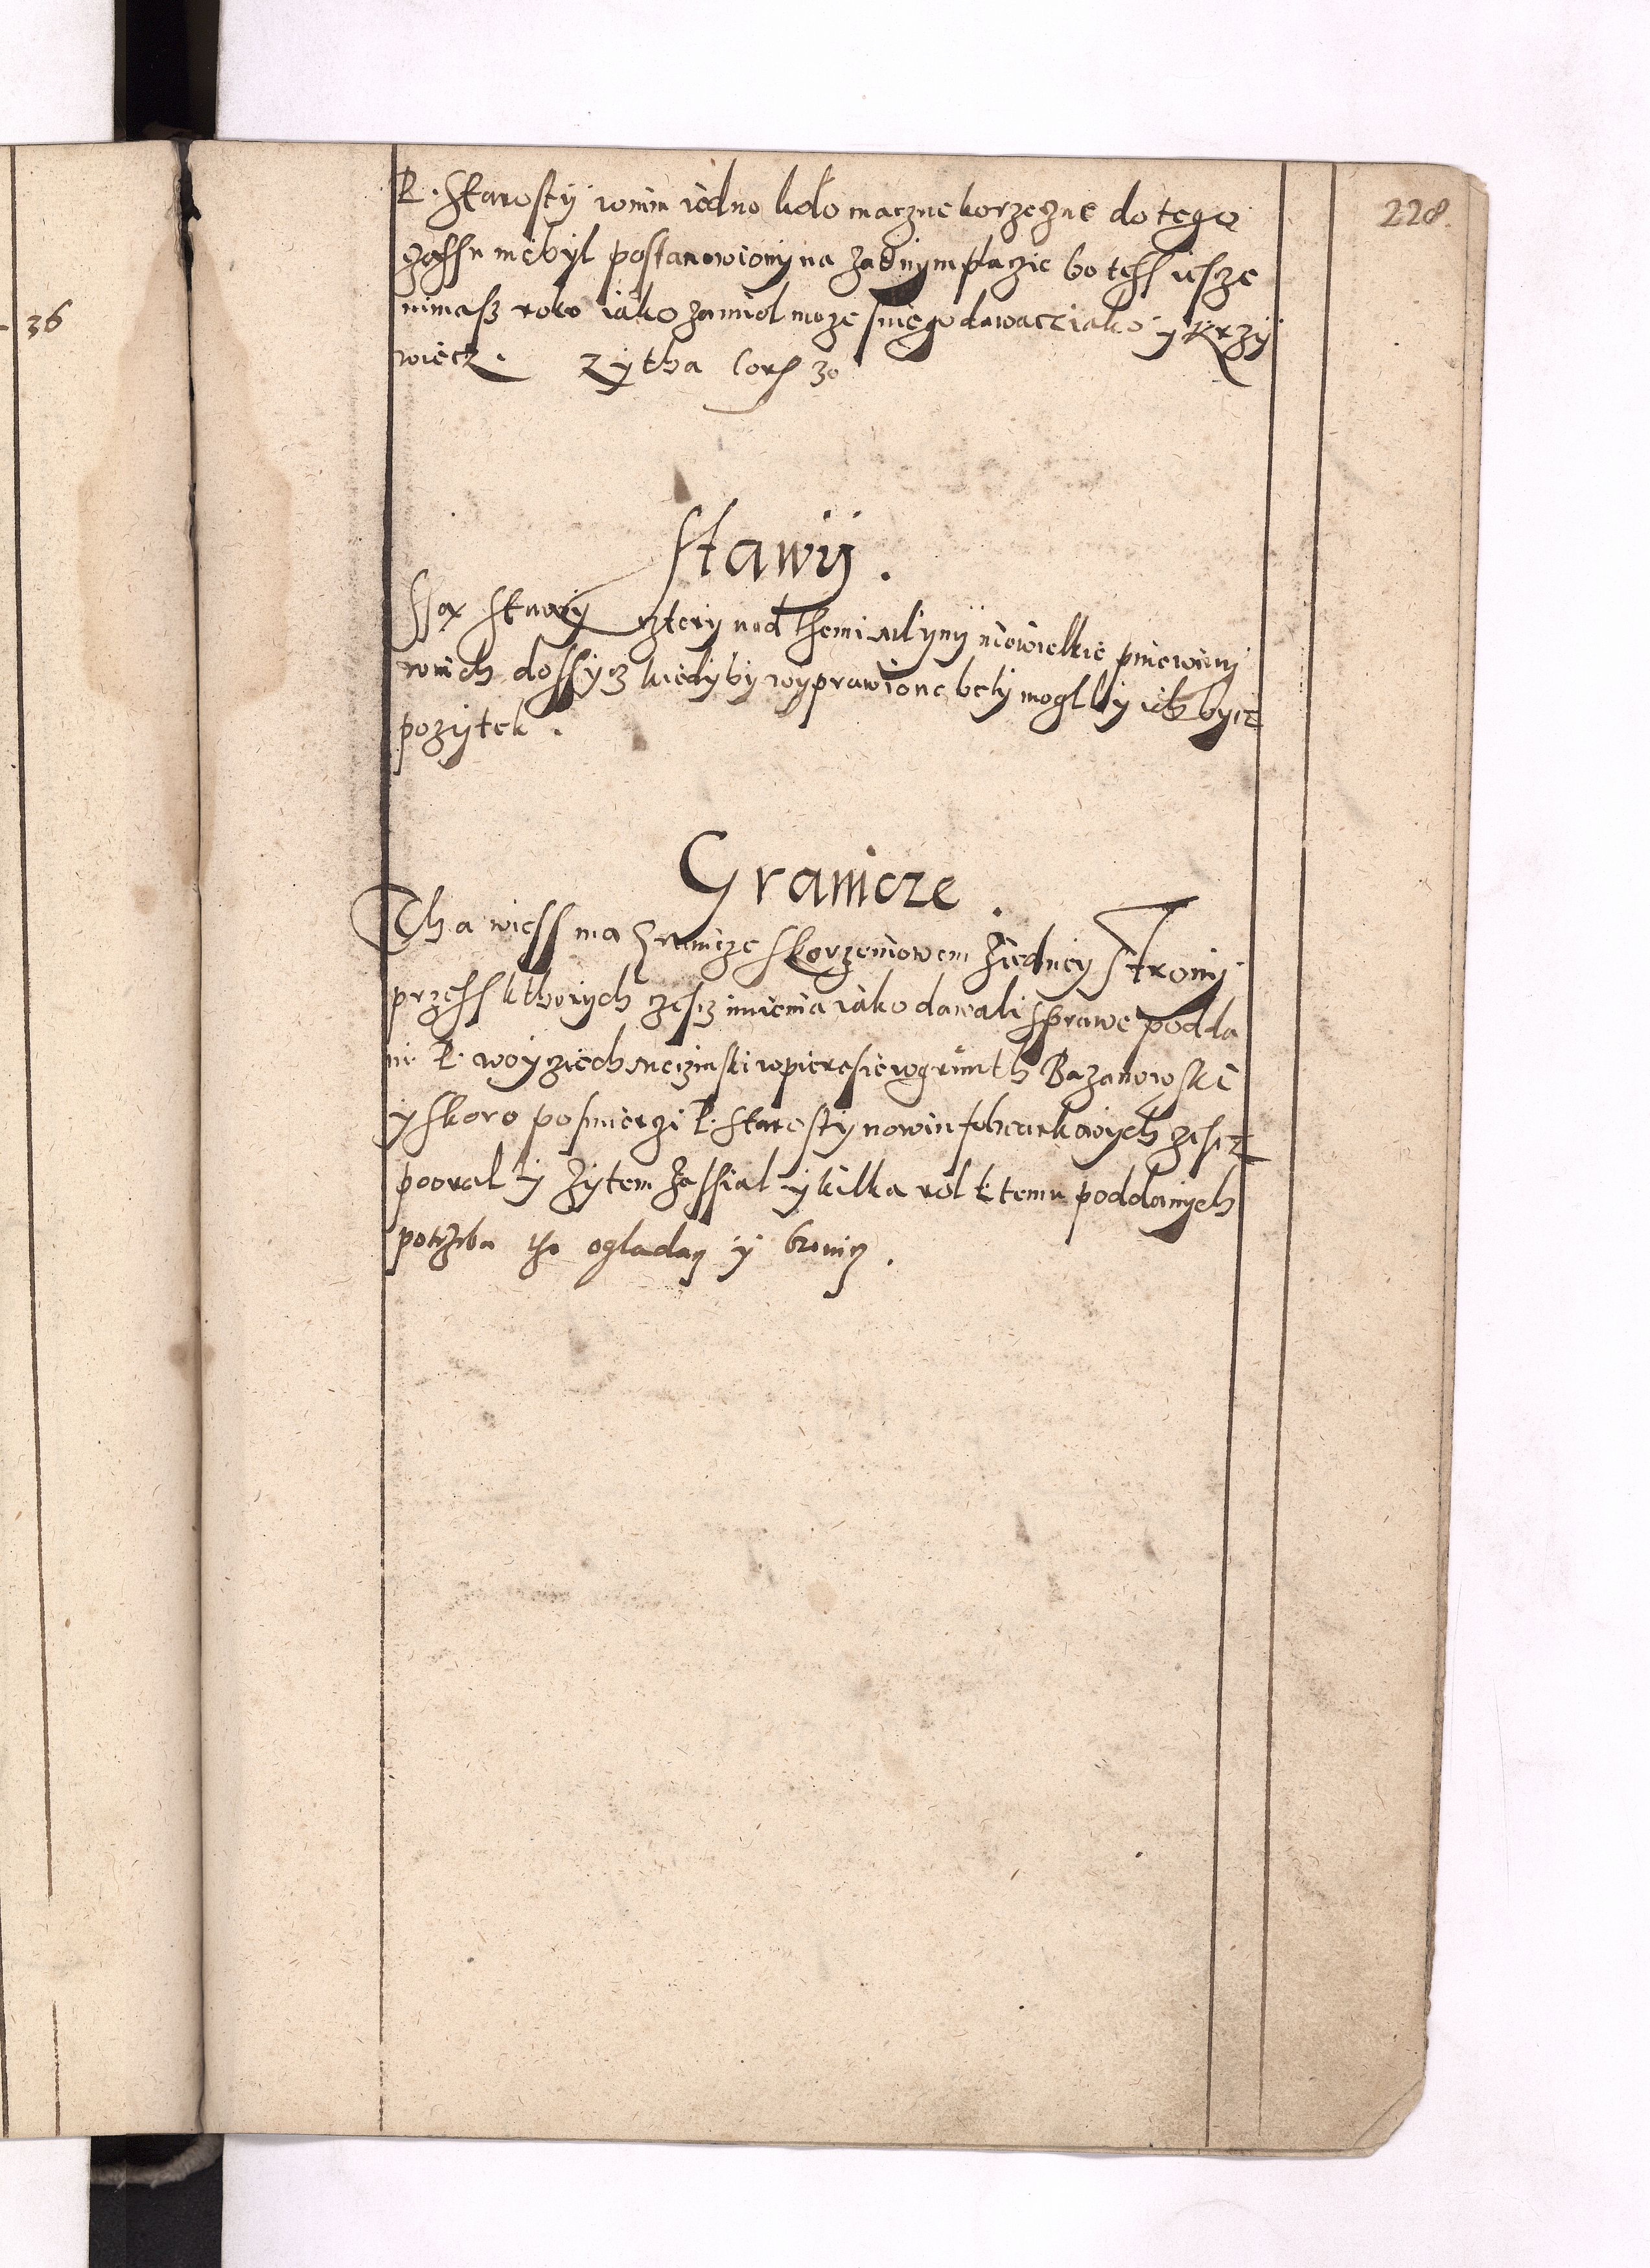 36
228.
P. Starosty wnim iedno koło maczne korzeczne do tego
czassu niebył postanowiony na żadnym płaczie bo tess iescze
nimasz roko iako zamiol może sniego dawacz iako y Krzy
wiecz. Zytha Cors 30
Stawy.
Ssą Stawy cztery nad themi młyny niewielkie pniewiny
wnich dossycz kiedy by wyprawione beły mogl by ich bycz
pozytek.
Granicze.
Tha wiess ma Granicze Skorzeniowem ziedney strony
przess kthorych czescz imienia iako dawali sprawe podda
ni P. Woycziech wpiera sie wgrunth Bazanowski
y skoro po smierczi P. Starosty nowin folwarkowych czescz
pooral y żytem zassial y kilka rol k temu poddanych
potrzeba tho ogladacz y bronicz.